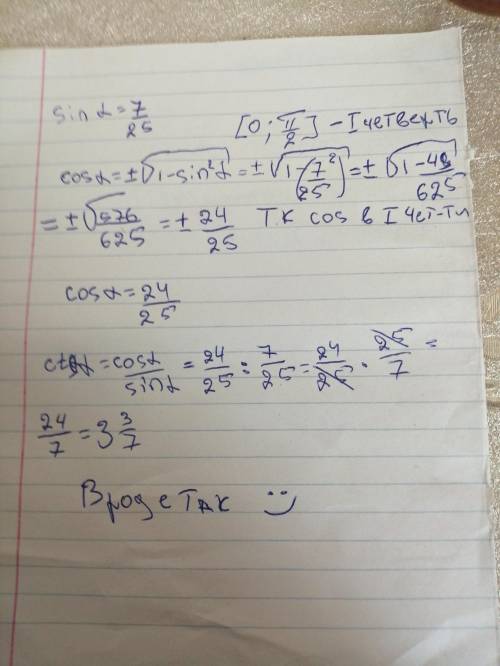 sin α = 7/25
[0; π/2] - I четверть
cos α = ±√(1-sin²α) = ±√(1-(7/25)²) = ±√(1-49/625)
= ±√(576/625) = ±24/25 Т.К cos в I чет-ти
cos α = 24/25
ctg α = cos α/sin α = 24/25 : 7/25 = 24/25 · 25/7 =
24/7 = 3 3/7
Вроде так :)